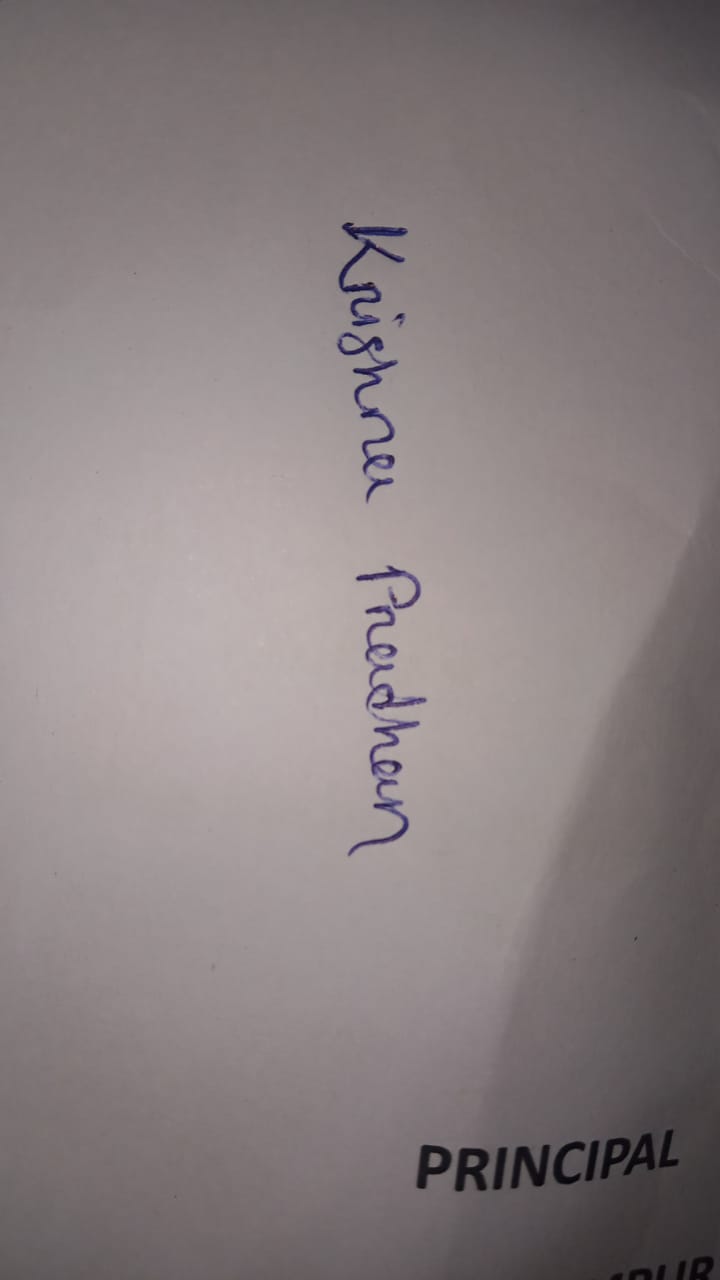 Krishna Pradhan
PRINCIPAL